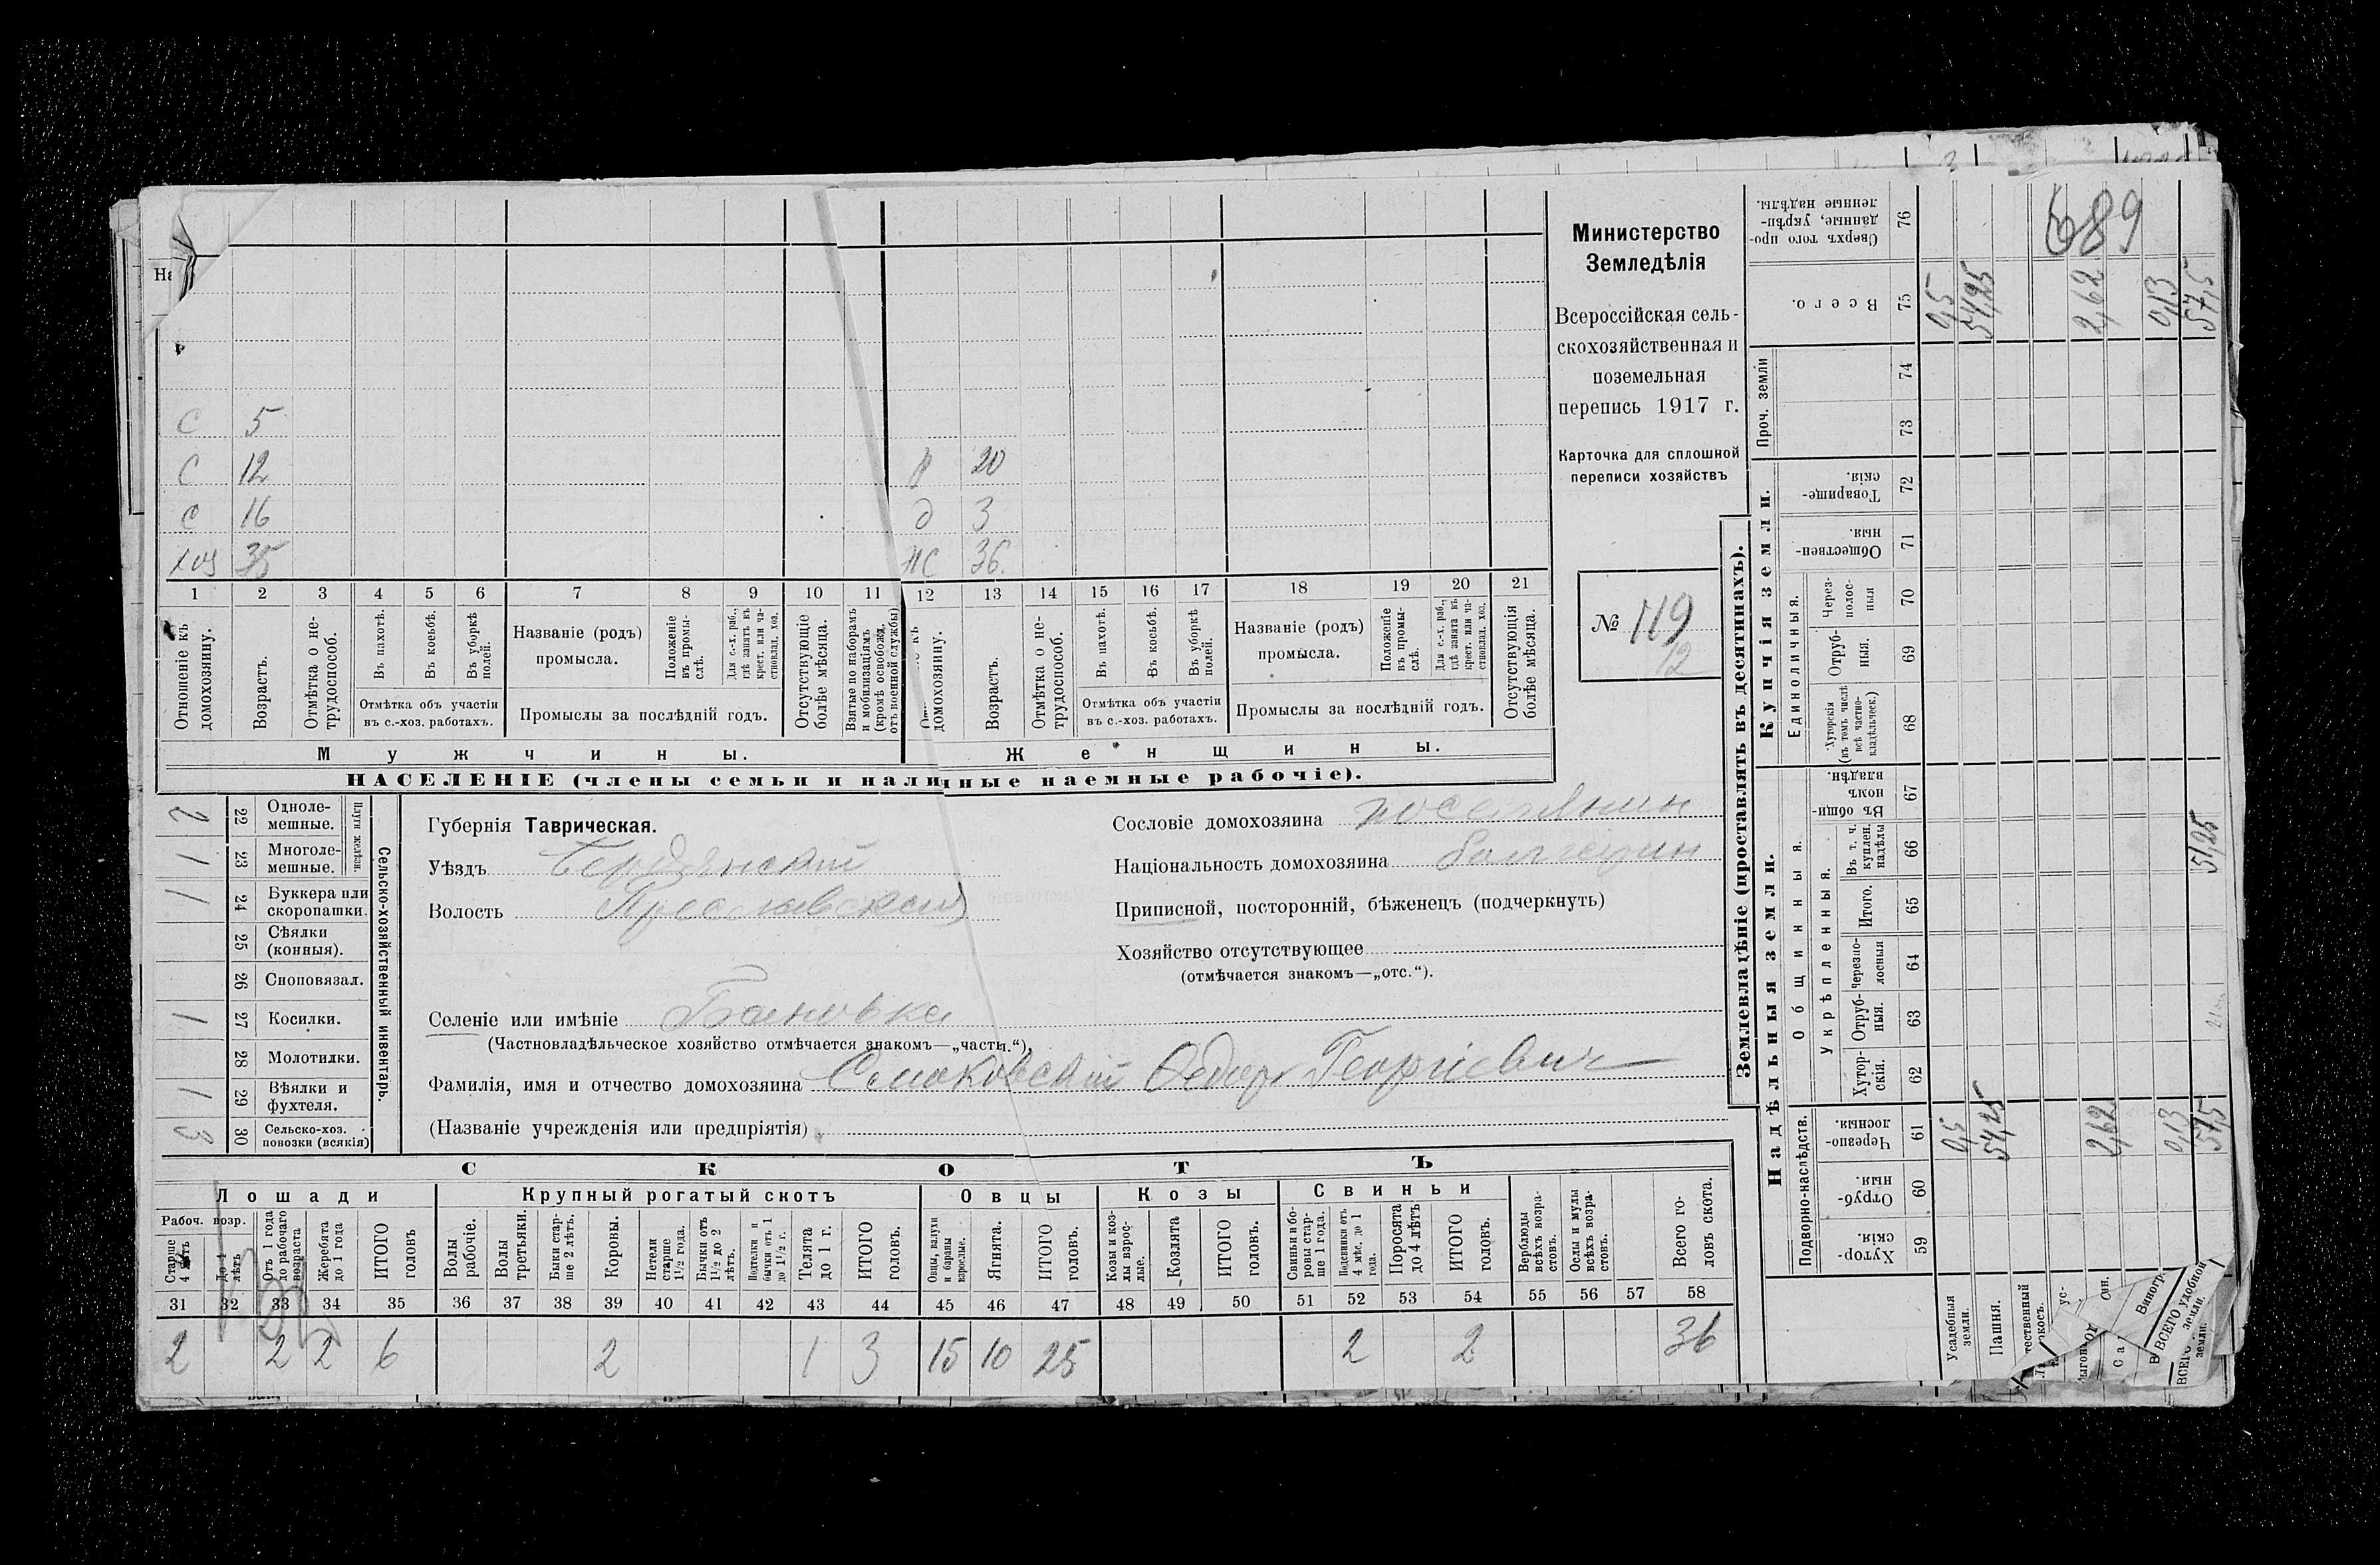 Министерство
Земледѣлія
Всероссійская сель-
скохозяйственная и
поземельная
перепись 1917 г.
Карточка для сплошной
переписи хозяйствъ
№ 119
12
689
С 5
С 12
р 20
С 16
д 3
хоз 35
ж 36.
1 2 3 4 5 6 7 8 9 10 11 12 13 14 15 16 17 18 19 20 21
Отношеніе къ домохозяину.
Возрастъ.
Отмѣтка о не-трудоспособ.
Въ пахотѣ.
Въ косьбѣ.
Въ уборкѣ полей.
Отмѣтка объ участіи
въ с.-хоз. работахъ.
Названіе (родъ)
промысла.
Положеніе въ промы-слѣ.
Для с.-х. раб., гдѣ занятъ въ крест. или ча-стновлад. хоз.
Промыслы за послѣдній годъ.
Отсутствующіе болѣе мѣсяца.
Взятые по наборамъ и мобилизаціямъ (кромѣ освобожд. отъ военной службы)
домохозяину.
Возрастъ.
Отмѣтка о не-трудоспособ.
Въ пахотѣ.
Въ косьбѣ.
Въ уборкѣ полей.
Отмѣтка объ участіи
въ с.-хоз. работахъ.
Названіе (родъ)
промысла.
Положеніе въ промы-слѣ.
Для с.-х. раб., гдѣ занята въ крест. или ча-стновлад. хоз.
Промыслы за послѣдній годъ.
Отсутствующія болѣе мѣсяца.
Мужчины.
Женщины.
НАСЕЛЕНІЕ (члены семьи и наличные наемные рабочіе).
Сельско-хозяйственный инвентарь.
Плуги желѣзн.
2 22 Одноле-мешные.
1 23 Многоле-мешные.
1 24 Буккера или скоропашки.
25 Сѣялки (конныя).
26 Сноповязал.
1 27 Косилки.
28 Молотилки.
1 29 Вѣялки и фухтеля.
3 30 Сельско-хоз. повозки (всякія)
Губернія Таврическая.
Уѣздъ Бердянскій
Волость Преславская
Селеніе или имѣніе Бановка
(Частновладѣльческое хозяйство отмѣчается знакомъ—„части.“)
Фамилія, имя и отчество домохозяина Семаковскій Ѳедоръ Георгіевич
(Названіе учрежденія или предпріятія)
Сословіе домохозяина поселянин
Національность домохозяина болгарин
Приписной, посторонній, бѣженецъ (подчеркнуть)
Хозяйство отсутствующее
(отмѣчается знакомъ—„отс.“).
СКОТЪ
Лошади
Рабоч. возр.
Старше 4 лѣтъ
До 4 лѣтъ
Отъ 1 года до рабочаго возраста
Жеребята до 1 года
ИТОГО головъ
Крупный рогатый скотъ
Волы рабочіе.
Волы третьяки.
Быки стар-ше 2 лѣтъ.
Коровы.
Нетели старше 1 1/2 года.
Бычки отъ 1 1/2 до 2 лѣтъ.
Подтелки и бычки отъ 1 до 1 1/2 г.
Телята до 1 г.
ИТОГО головъ.
Овцы
Овцы, валухи и бараны взрослые.
Ягнята.
ИТОГО головъ.
Козы
Козы и коз-лы взрос-лые.
Козлята
ИТОГО головъ.
Свиньи
Свиньи и бо-ровы стар-ше 1 года.
Подсвинки отъ 4 мѣс. до 1 года.
Поросята до 4 лѣтъ
ИТОГО головъ.
Верблюды всѣхъ возра-стовъ.
Ослы и мулы всѣхъ возра-стовъ.
Всего го-ловъ скота.
31 32 33 34 35 36 37 38 39 40 41 42 43 44 45 46 47 48 49 50 51 52 53 54 55 56 57 58
2 2 2 6 2 1 3 15 10 25 2 2 36
Землевладѣніе (проставлять въ десятинахъ).
Надѣльныя земли.
Подворно-наслѣдств.
Хутор-скія. 59
Отруб-ныя. 60
Черезпо-лосныя. 61
Общинныя.
Укрѣпленныя.
Хутор-скія. 62
Отруб-ныя. 63
Черезпо-лосныя 64
Итого. 65
Въ т. ч. куплен. надѣлы 66
Въ общин-номъ владѣн. 67
Купчія земли.
Единоличныя.
Хуторскія (въ томъ числѣ всѣ частно-владѣльческ.) 68
Отруб-ныя. 69
Через-полос-ныя 70
Обществен-ныя. 71
Товарище-скія. 72
Проч. земли
73
74
Всего. 75
Сверхъ того про-данные, укрѣп-ленные надѣлы. 76
Усадебныя земли.
0,5 0,5
Пашня.
54,25 54,25
2,62 2,62
Виногр.
0,13 0,13
ВСЕГО удобной земли.
57,5 51,25 57,5